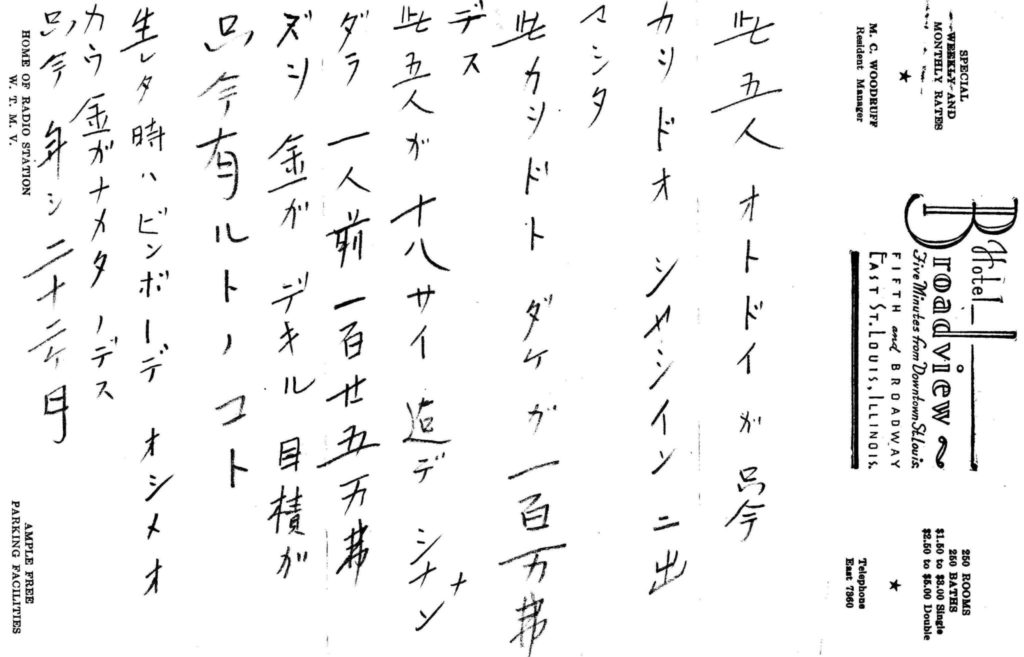 SPECIAL
WEEKLY AND
MONTHLY RATES
★
M. C. WOODRUFF
Resident Manager
Hotel
Broadview
Five Minutes from Downtown St. Louis
FIFTH and BROADWAY
EAST ST. LOUIS, ILLINOIS.
250 ROOMS
250 BATHS
$1.50 to $3.00 Single
$2.50 to $5.00 Double
★
Telephone
East 7360
此五人オトドイが只今
カンドオシャシインニ出
マンタ
此カンドトダケガ一百万弗
デス
此五人が十八サイ迠デシナナン
ダラ一人前一百廿五万弗
ズン金ガデキル目積ガ
只今有ルトノコト
生レタ時ハビンボーデオシメオ
カウ金ガナメタノデス
只今年シ二十二ケ月
HOME OF RADIO STATION
W. T. M. V.
AMPLE FREE
PARKING FACILITIES